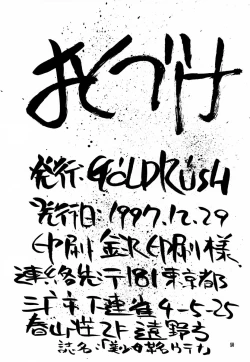 おくづけ
発行:GOLDRUSH
発行日:1997.12.29
印刷 金沢印刷様
連絡先〒181東京都
三鷹市下連雀4-5-25
春山荘2F 遠野方
誌名:「美少女革命ウテナ」